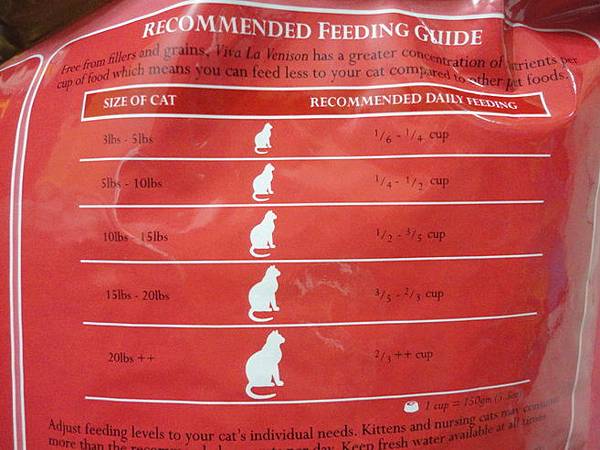 RECOMMENDED FEEDING GUIDE
Free from fillers and grains, Viva La Venison has a greater concentration of nutrients per
cup of food which means you can feed less to your cat compared to other pet foods.
SIZE OF CAT RECOMMENDED DAILY FEEDING
3lbs - 5lbs 1/6 - 1/4 cup
5lbs - 10lbs 1/4 - 1/2 cup
10lbs - 15lbs 1/2 - 3/5 cup
15lbs - 20lbs 3/5 - 2/3 cup
20lbs ++ 2/3 ++ cup
1 cup = 150gm
Adjust feeding levels to your cat's individual needs. Kittens and nursing cats may
more than the per day. Keep fresh water available at all times.